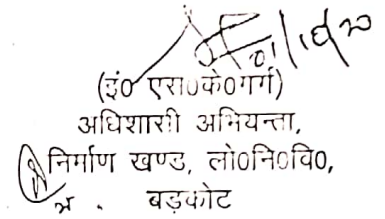 01/10/20
(इं० एस०के०गर्ग)
अधिशासी अभियन्ता,
निर्माण खण्ड, लो०नि०वि०,
बड़कोट